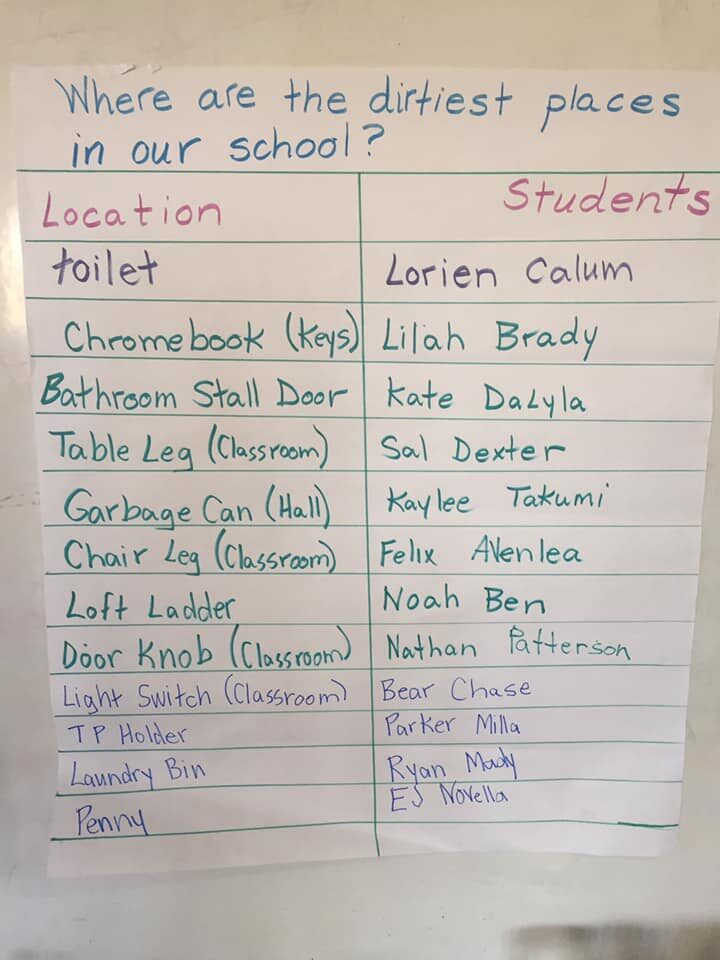 Where are the dirtiest places
in our school?
Location Students
toilet Lorien Calum
Chromebook (Keys) Lilah Brady
Bathroom Stall Door Kate DaLyla
Table Leg (Classroom) Sal Dexter
Garbage Can (Hall) Kaylee Takumi
Chair Leg (Classroom) Felix Avenlea
Loft Ladder Noah Ben
Door Knob (Classroom) Nathan Patterson
Light Switch (Classroom) Bear Chase
TP Holder Parker Milla
Laundry Bin Ryan Mady
Penny EJ Novella